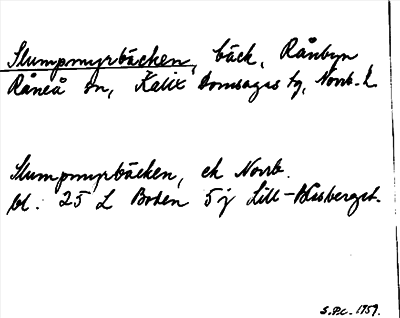 Slumpmyrbäcken, bäck, Rånbyn
Råneå sn, Kalix Domsagas tg, Norrb. l.
Slumpmyrbäcken, ek Norrb.
bl. 25 L Boden 5j Lill-Blisberget.
S.P.C. 1959.